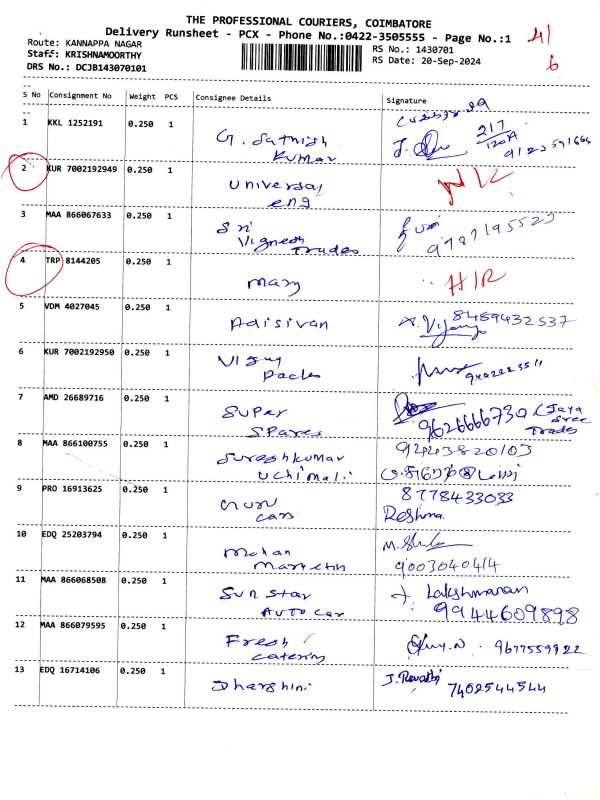 THE PROFESSIONAL COURIERS, COIMBATORE
Delivery Runsheet - PCX - Phone No.:0422-3505555 - Page No.:1
Route: KANNAPPA NAGAR
Staff: KRISHNAMOORTHY
DRS No.: DCJB143070101
RS No.: 1430701
RS Date: 20-Sep-2024
6
S No Consignment No Weight PCS Consignee Details Signature
1 KKL 1252191 0.250 1
G. Sathish
Kumar
217
120A
2 KUR 7002192949 0.250 1
Universal
eng
3 MAA 866067633 0.250 1
Sri
Vignesh
Trades
9787195523
4 TRP 8144205 0.250 1
Mary
5 VDM 4027045 0.250 1
Adisivan
8489432537
6 KUR 7002192950 0.250 1
Vijay
Packs
7 AMD 26689716 0.250 1
Super
Spares
9626666730 (Jaya
Sree
Trades
8 MAA 866100755 0.250 1
Sureshkumar
Uchimali
92443820103
9 PRO 16913625 0.250 1
Cars
8778433033
Reshma
10 EDQ 25203794 0.250 1
9003040414
11 MAA 866068508 0.250 1
Sun Star
Auto Car
Lakshmanan
9944609898
12 MAA 866079595 0.250 1
Fresh
Catering
9677559822
13 EDQ 16714106 0.250 1
Dharshini
J. Revathi
7402544544